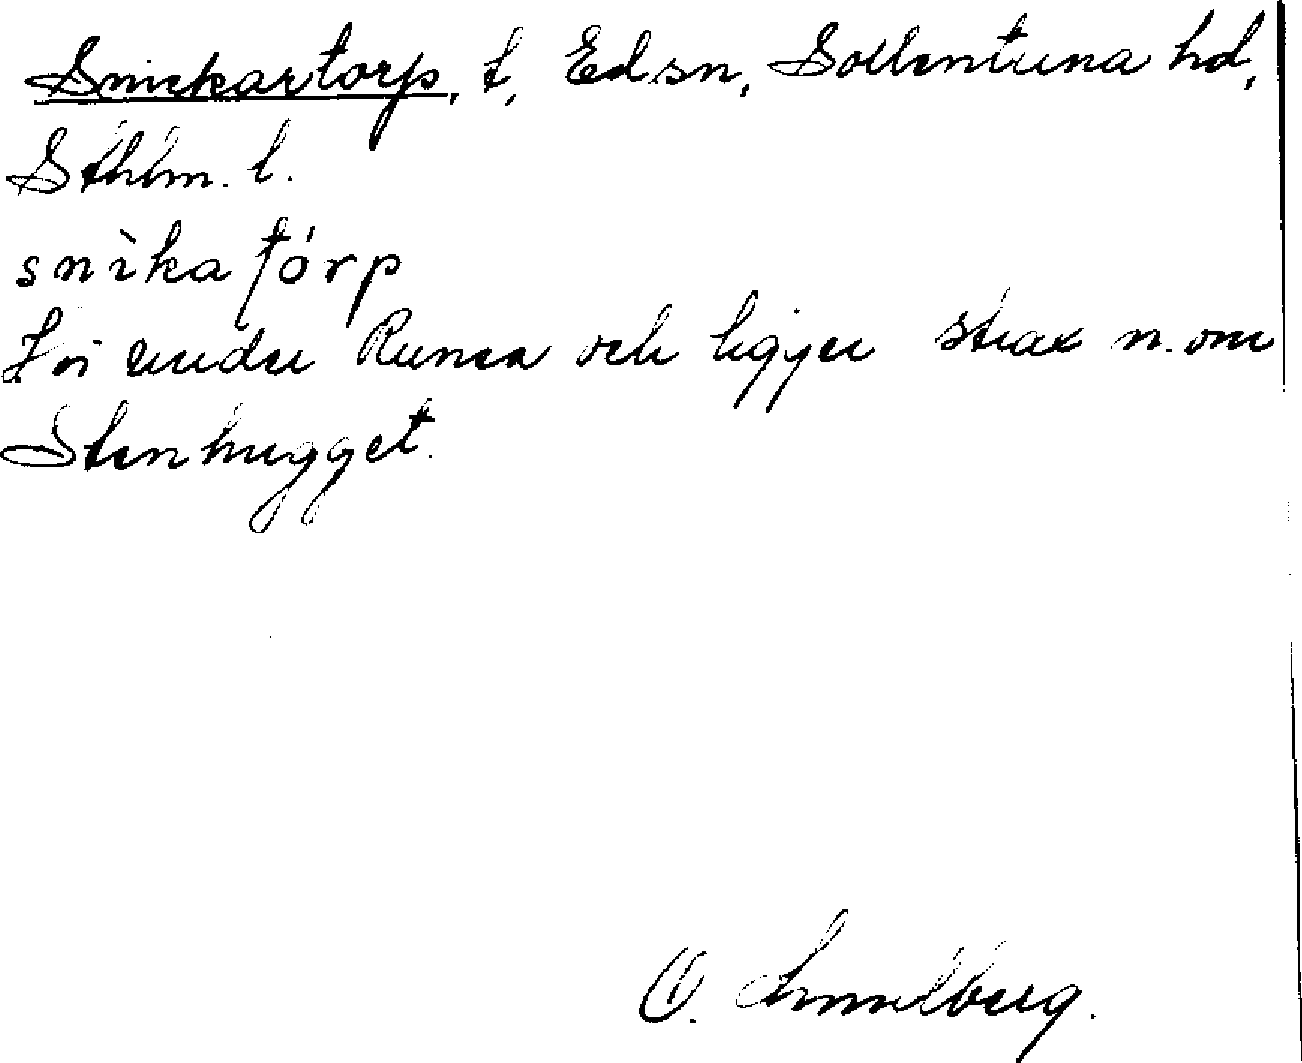 Snickartorp, t, Edsn, Sollentuna hd,
Sthlm. l.
snìkatórp
Lör under Runsa och ligger strax n. om
Stenhugget.
O.